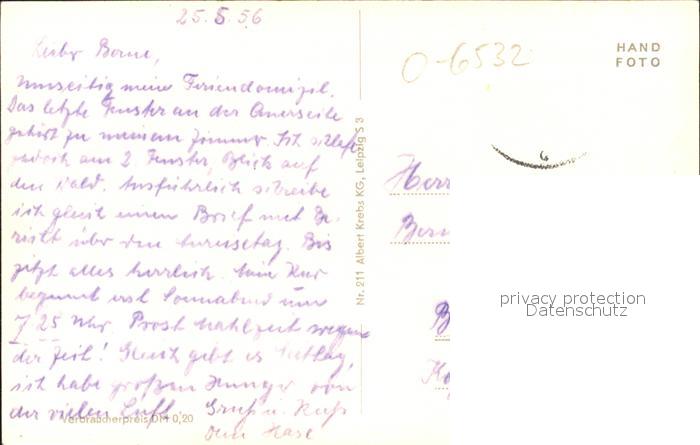 25.5.56
Lieber Bernd,
umseitig mein Feriendomizil.
Das letzte Fenster an der Querseite
gehört zu meinem Zimmer. Ich schlafe
jedoch am 2. Fenster, Blick auf
den Wald. Ausführlich schreibe
ich gleich einen Brief mit Be-
richt über den Anreisetag. Bis
jetzt alles herrlich. Kur
beginnt erst Sonnabend um
7 25 Uhr. Prost Mahlzeit wegen
der Zeit! Gleich gibt es Mittag,
ich habe großen Hunger von
der vielen Luft. Gruß u. Kuß
Dein Hase
Verbraucherpreis DM 0,20
Nr. 211 Albert Krebs KG, Leipzig S 3
O-6532
HAND
FOTO
6
Herr
privacy protection
Datenschutz